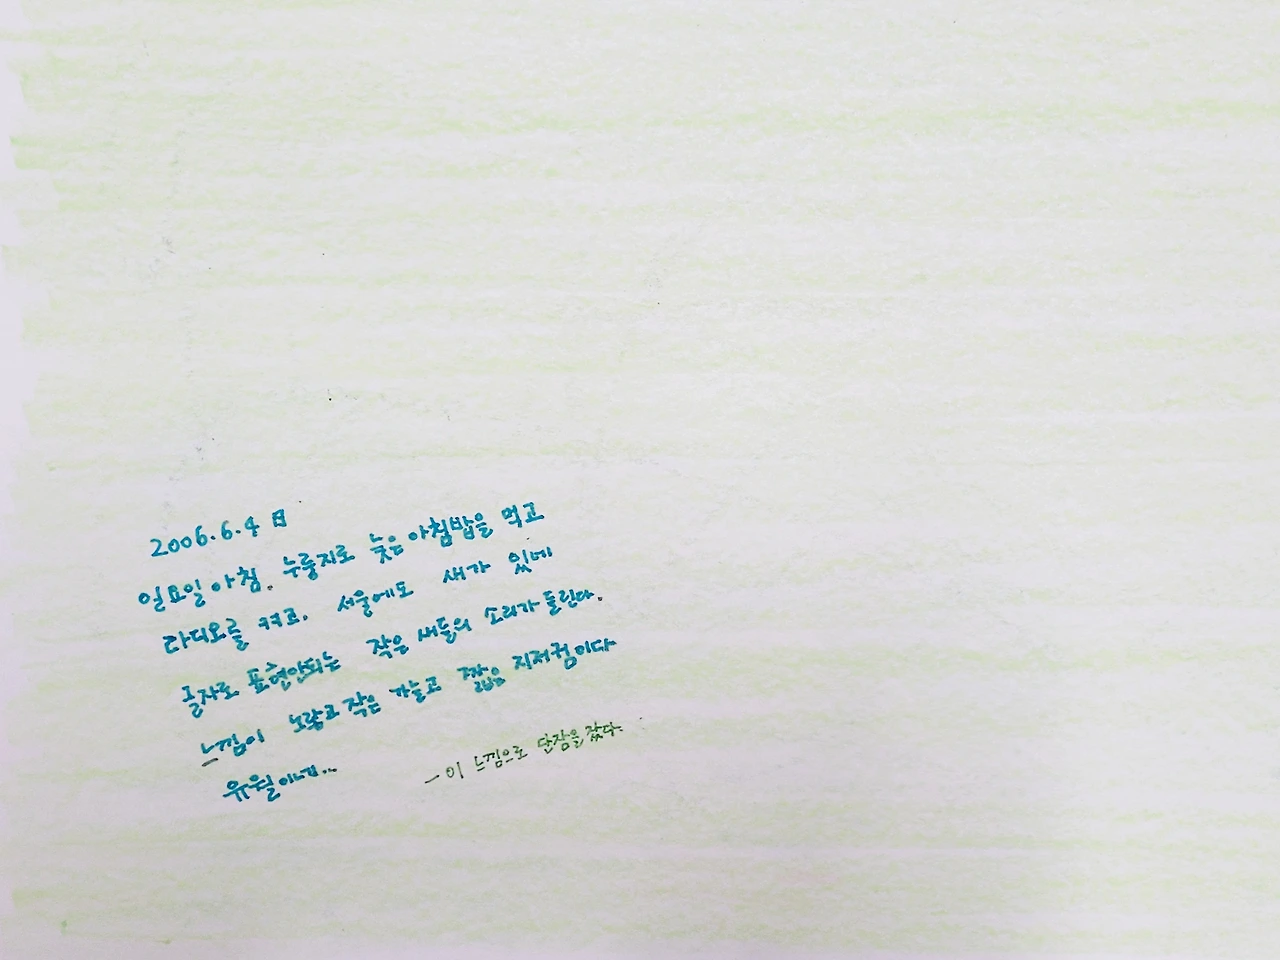 2006.6.4 日
일요일 아침. 누룽지로 늦은 아침밥을 먹고
라디오를 켜고. 서울에도 새가 있네
글자로 표현안되는 작은 새들의 소리가 들린다.
느낌이 노랗고 작은 가늘고 짧은 지저귐이다
유월이네...
- 이 느낌으로 단잠을 잤다.